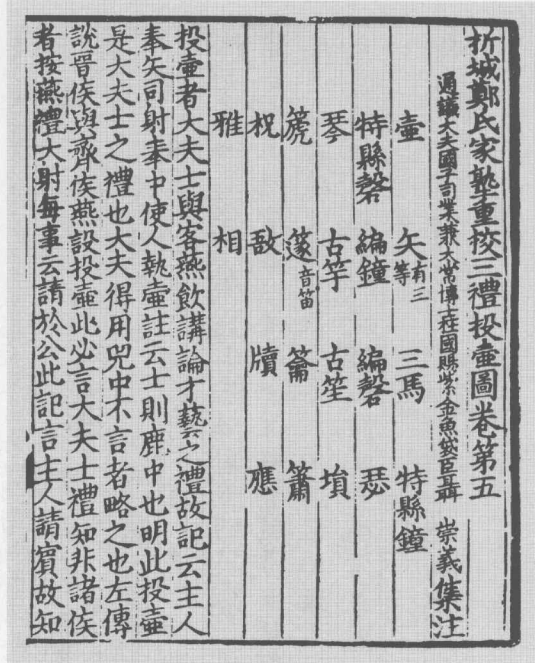 析城鄭氏家塾重挍三禮投壺圖卷第五
通議大夫國子司業兼太常博士柱國賜紫金魚袋臣聶 崇義 集注
壺 矢有三等 三馬 特縣鐘
特縣磬 編鐘 編磬 瑟
琴 古竽 古笙 塤
篪 篴音笛 籥 簫
柷 敔 牘 應
雅 相
投壺者大夫士與客燕飲講論才藝之禮故記云主人
奉矢司射奉中使人執壺註云士則鹿中也明此投壺
是大夫士之禮也大夫得用兕中不言者略之也左傳
說晉侯與齊侯燕設投壺此必言大夫士禮知非諸侯
者按燕禮大射每事云請於公此記言主人請賔故知